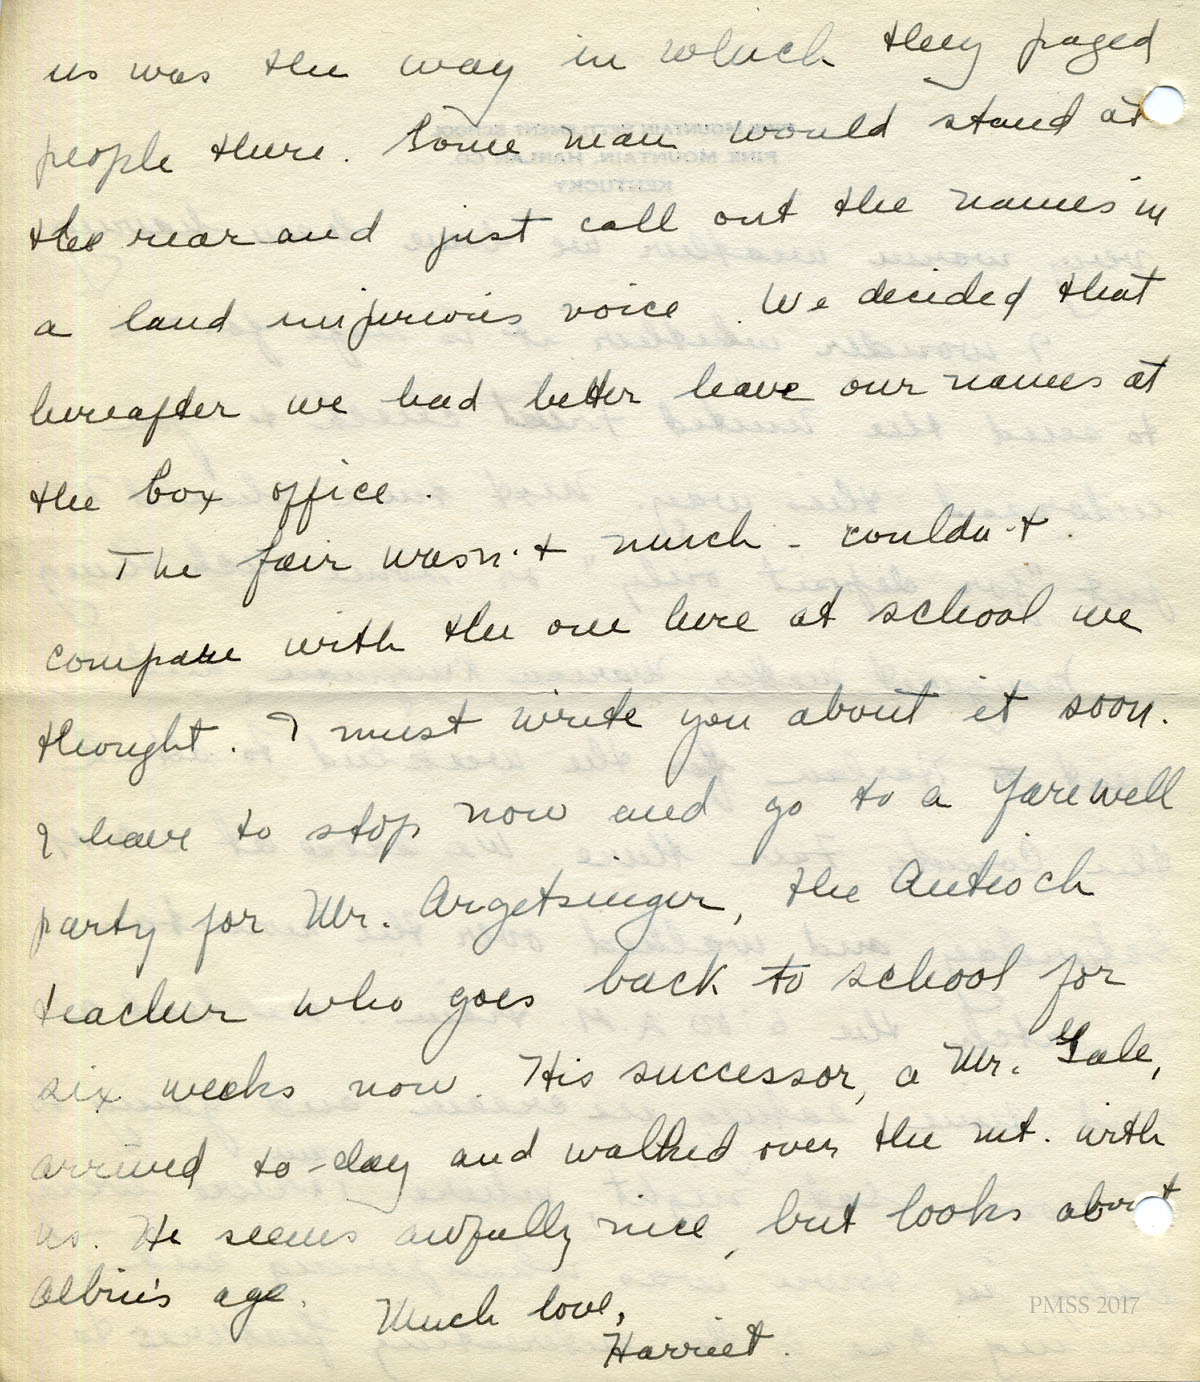 us was the way in which they paged
people there. Some man would stand at
the rear and just call out the names in
a loud imperious voice. We decided that
hereafter we had better leave our names at
the box office.
The fair wasn't much - couldn't
compare with the one here at school we
thought. I must write you about it soon.
I have to stop now and go to a farewell
party for Mr. Argetsinger, the Antioch
teacher who goes back to school for
six weeks now. His successor, a Mr. Gale,
arrived to-day and walked over the mt. with
us. He seems awfully nice, but looks about
Albin's age.
Much love,
Harriet.
PMSS 2017